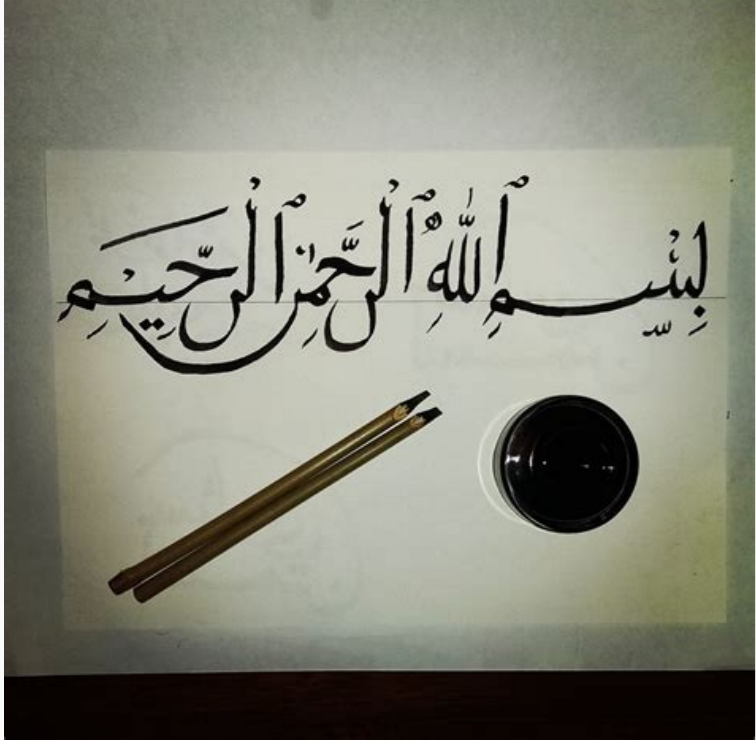 بِسْمِ ٱللَّهِ ٱلْرَّحْمَٰنِ ٱلْرَّحِيمِ